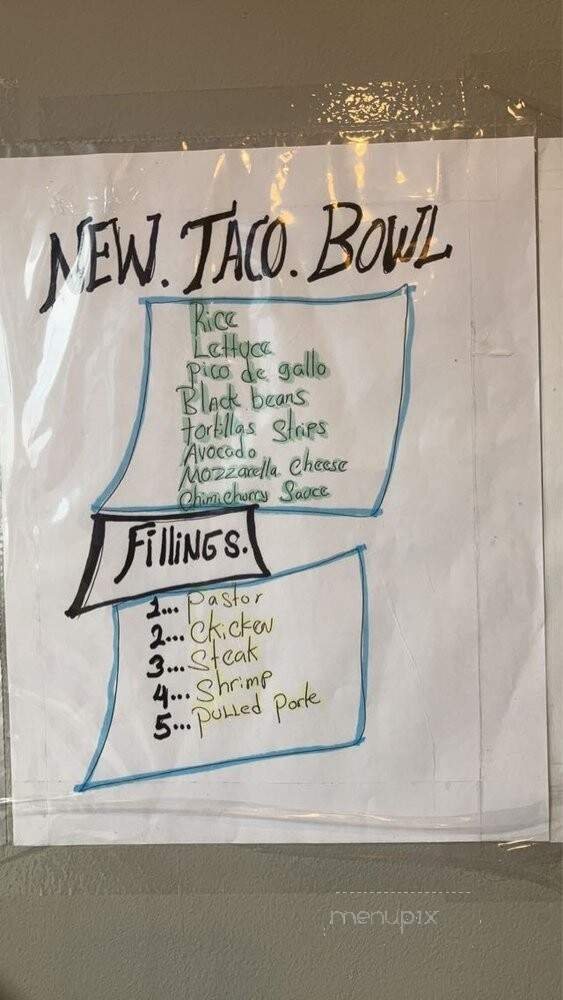 NEW. TACO. BOWL
Rice
Lettuce
pico de gallo
Black beans
tortillas Strips
Avocado
Mozzarella cheese
Chimichurry Sauce
FilliNGS.
1... Pastor
2... Chicken
3... Steak
4... Shrimp
5... Pulled Pork
menupix